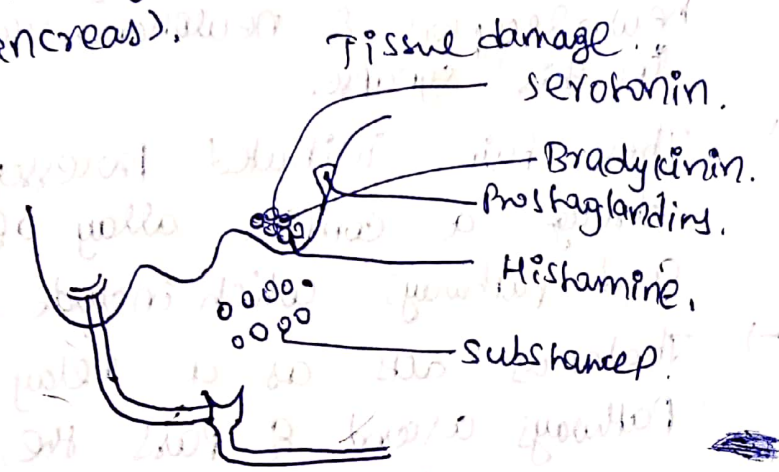 encreas).
Tissue damage.
serotonin.
Bradykinin.
Prostaglandins.
Histamine.
substancep.